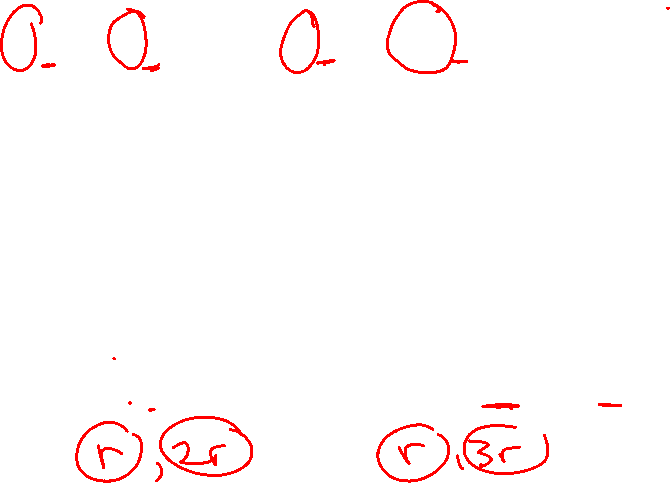 r, 2r r, 3r